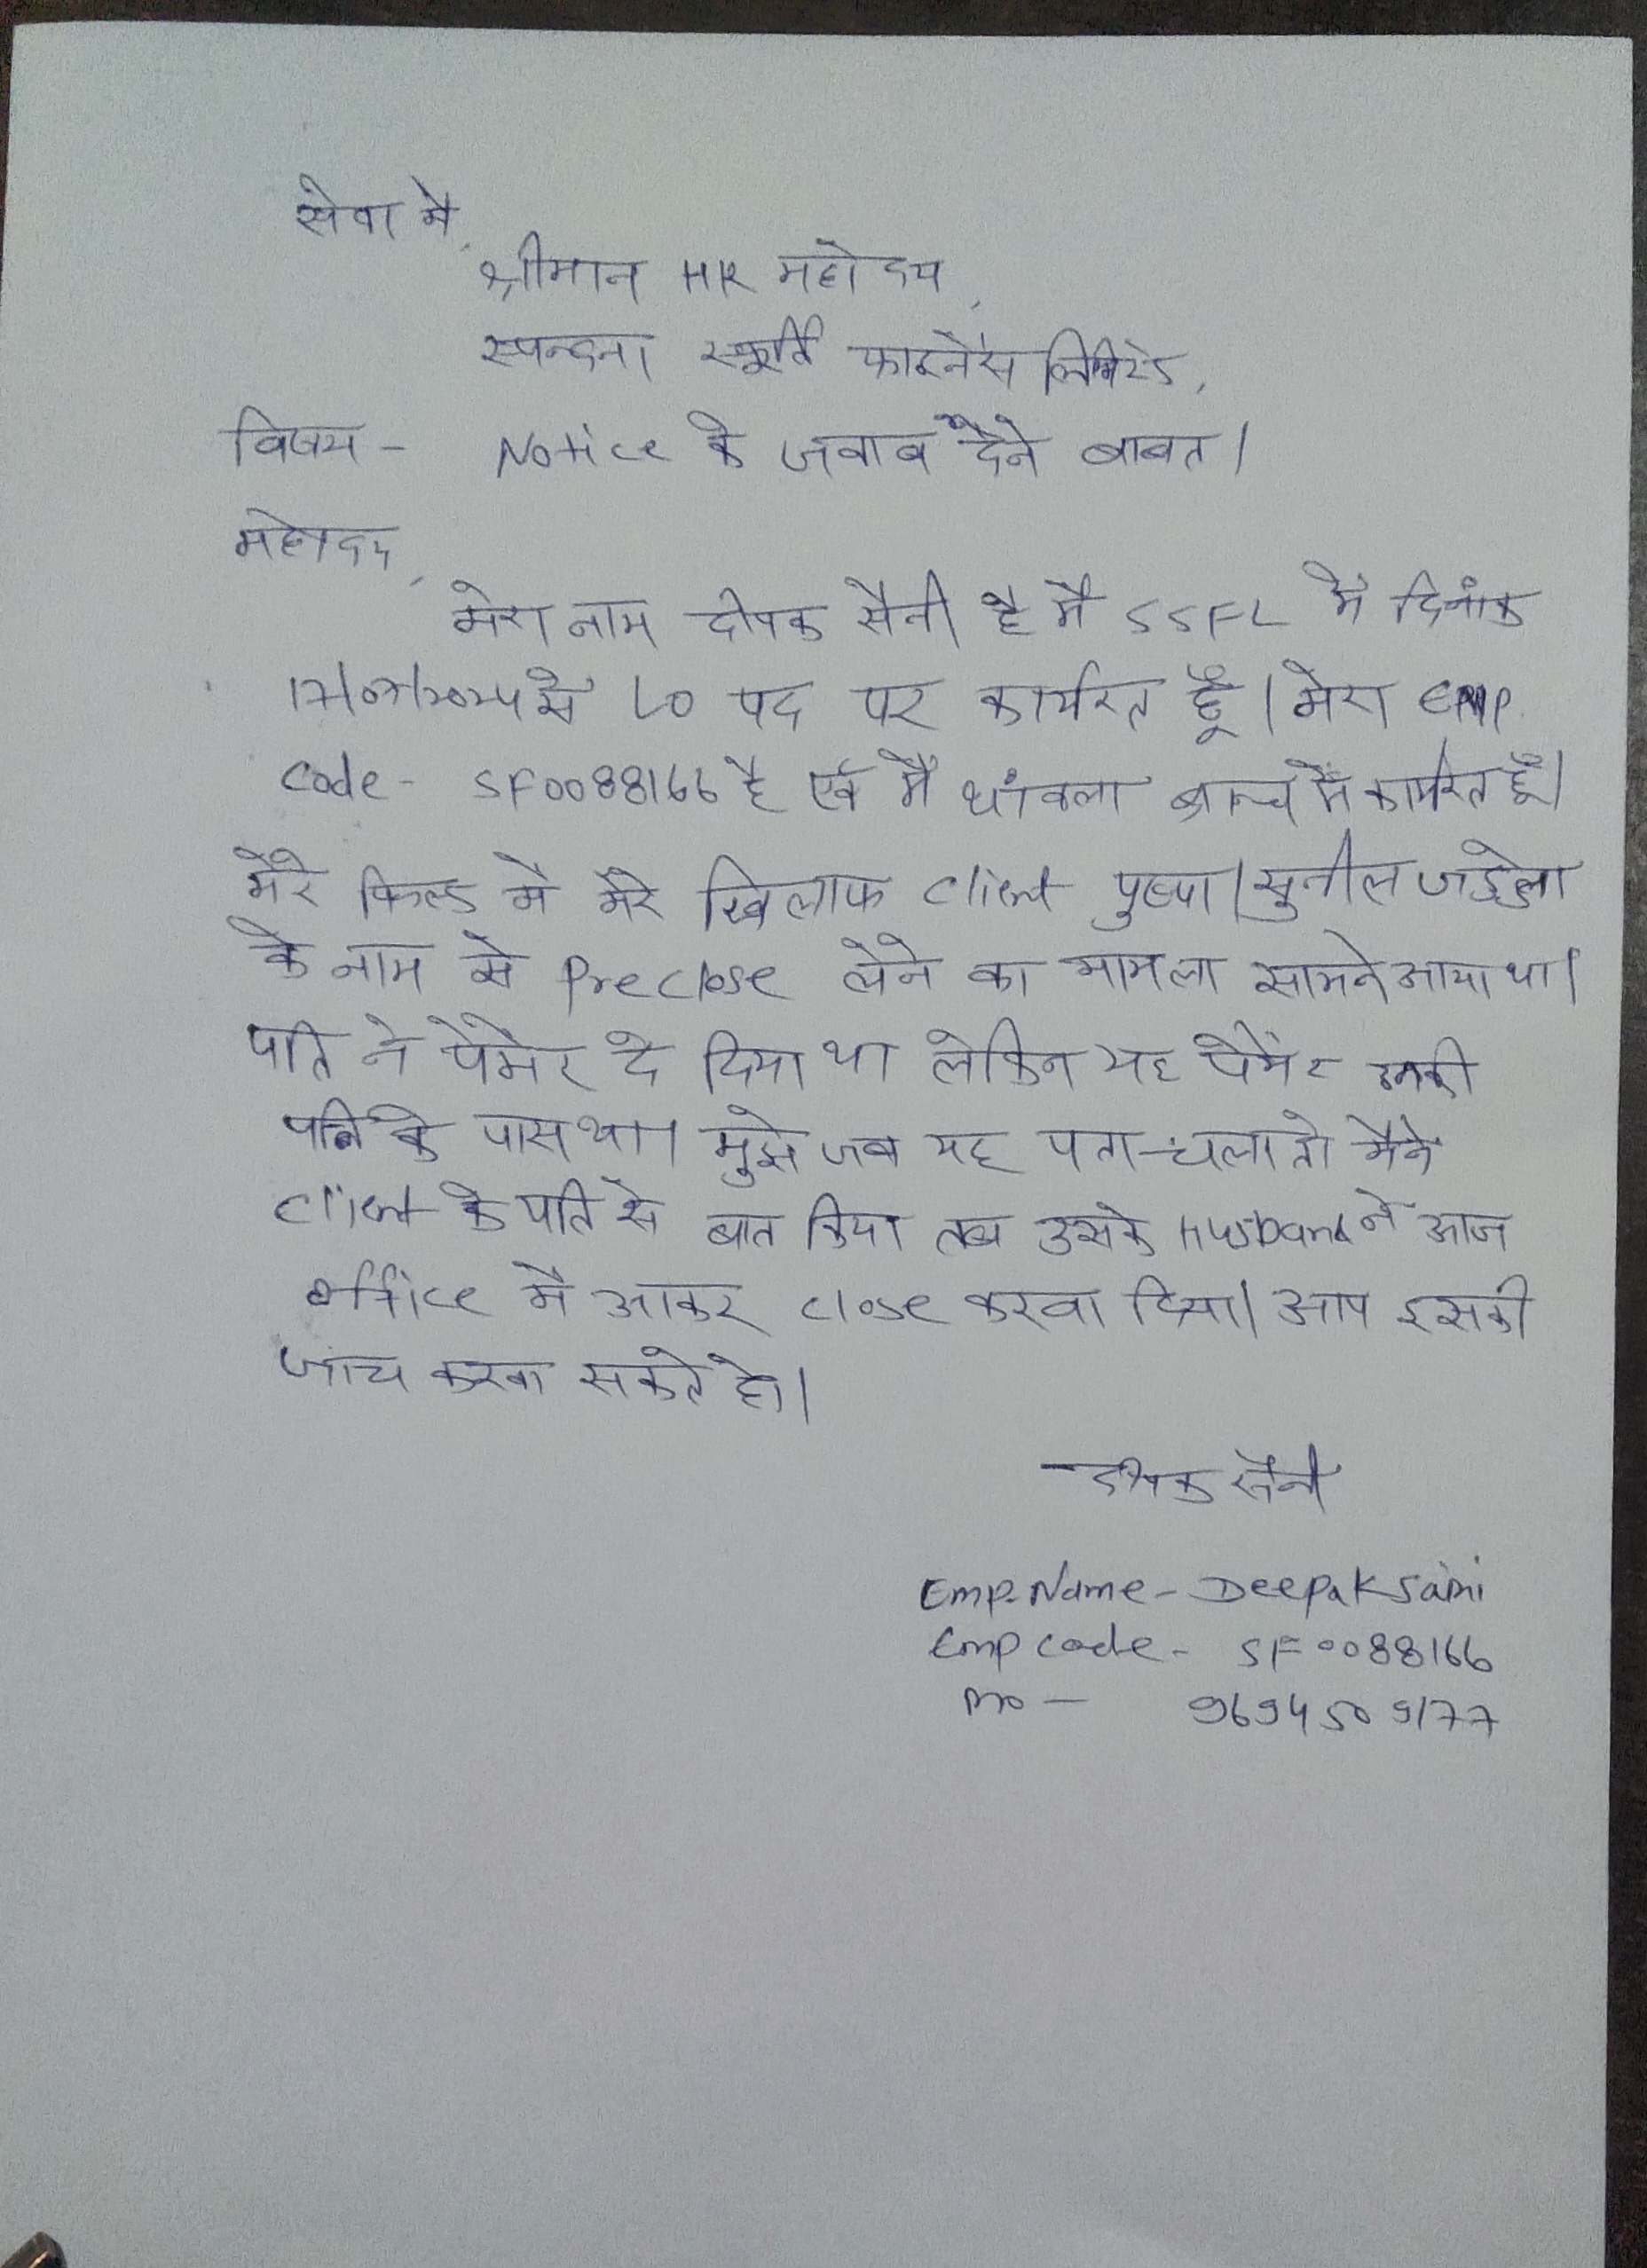 सेवा में,
श्रीमान HR महोदय,
स्पन्दना स्फूर्ति फाइनेंस लिमिटेड,
विषय - Notice के जवाब देने बाबत।
महोदय,
मेरा नाम दीपक सैनी है मैं SSFL में दिनांक
17/07/2024 से LO पद पर कार्यरत हूँ। मेरा emp
code - SF0088166 है एवं मैं थांवला ब्रान्च में कार्यरत हूँ।
मेरे फिल्ड में मेरे खिलाफ client पुष्पा/सुनील जडेला
के नाम से Preclose लेने का मामला सामने आया था।
पति ने पेमेंट दे दिया था लेकिन यह पेमेंट उनकी
पत्नि के पास था। मुझे जब यह पता चला तो मैने
client के पति से बात किया तब उसके Husband ने आज
office में आकर close करवा दिया। आप इसकी
जाच करवा सकते हो।
दीपक सैनी
Emp. Name - Deepak Saini
Emp code - SF0088166
mo - 9694509177